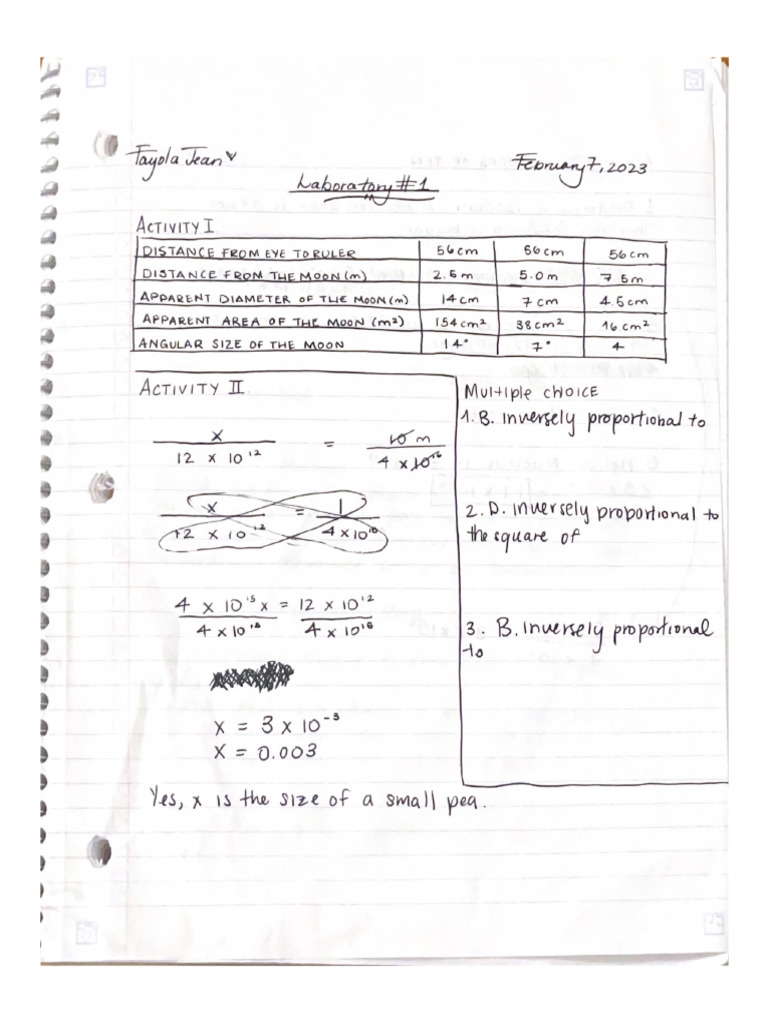 Fayola Jean
February 7, 2023
Laboratory #1
ACTIVITY I
DISTANCE FROM EYE TO RULER 56cm 56cm 56cm
DISTANCE FROM THE MOON (m) 2.5m 5.0m 7.5m
APPARENT DIAMETER OF THE MOON (m) 14cm 7cm 4.5cm
APPARENT AREA OF THE MOON (m²) 154cm² 38cm² 16cm²
ANGULAR SIZE OF THE MOON 14° 7° 4
ACTIVITY II
x / 12 x 10¹² = 10 m / 4 x 10¹⁶
x / 12 x 10¹² = 1 / 4 x 10¹⁵
4 x 10¹⁵ x = 12 x 10¹²
4 x 10¹⁵ 4 x 10¹⁵
x = 3 x 10⁻³
x = 0.003
Yes, x is the size of a small pea.
Multiple choice
1. B. inversely proportional to
2. D. inversely proportional to
the square of
3. B. inversely proportional
to